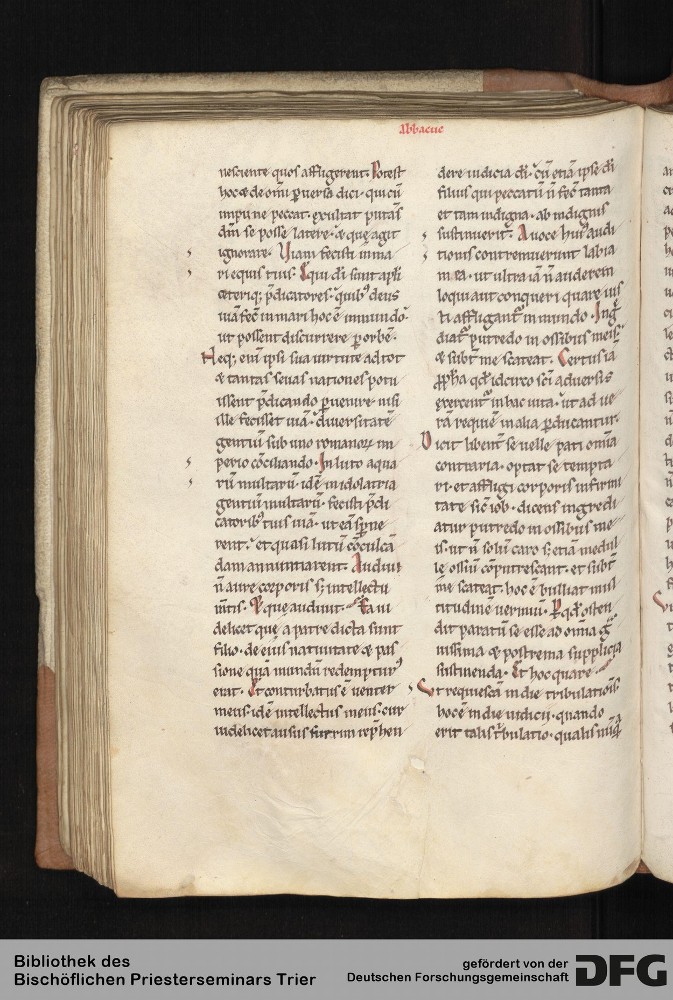 abbacuc
nesciente quos affligerent. Potest
hoc & de om̄i puersa dici. qui cū
impune peccat. exultat putās
dm̄ se posse latere. & quę agit
ignorare. Uiam fecisti in ma
ri equis tuis. Equi dī sunt apłi
ceteriq; p̄dicatores. quib; deus
uiā fec̄ in mari hoc ē in mundo.
ut possent discurrere p orbē.
Neq; enī ipsi sua uirtute ad tot
& tantas seuas nationes potu
issent p̄dicando puenire. nisi
ille fecisset uiā. diuersitatē
gentiū sub uno romanoꝝ im
perio cōciliando. In luto aqua
rū multarū. idē in idolatria
gentiū multarū. fecisti p̄di
catorib; tuis uiā. ut eā
rent. et quasi lutū cōculcā
dam annuntiarent. Audiui
n̄ aure corporis s; intellectu
m̄tis. Et quę audiuit. Ea ui
delicet quę a patre dicta sunt
filio. de eius natiuitate & pas
sione qua mundū redempturus
erat. Et conturbatus ē uenter
meus. idē intellectus meus. cur
uidelicet ausus fuerim rep̄hen
dere iudicia dī. cū etiā ipse dī
filius qui peccatū n̄ fec̄ tanta
et tam indigna. ab indignis
sustinuerit. A uoce hui; audi
tionis contremuerunt labia
mea. ut ultra iā n̄ auderem
loqui aut conqueri quare ius
ti affligant̄ in mundo. Ingr̄
diat̄ putredo in ossibus meis.
& subt̄ me scateat. Certus iā
ꝓpħa qđ idcirco sc̄i aduersis
exercent̄ in hac uita. ut ad ue
rā requiē in alia pducantur.
Dicit libent̄ se uelle pati omīa
contraria. optat se tempta
ri. et affligi corporis infirmi
tate sic̄ iob. dicens ingredi
atur putredo in ossibus me
is. ut n̄ solū caro s; etiā medul
lę ossiū cōputrescant. et subt̄
me scateat. hoc ē bulliat mul
titudine uermiū. Per qđ osten
dit paratū se esse ad omīa
uissima & postrema supplicia
sustinenda. Et hoc quare
Ut requiescā in die tribulationis.
hoc ē in die iudicii. quando
erit talis tribulatio. qualis
Bibliothek des
Bischöflichen Priesterseminars Trier
gefördert von der
Deutschen Forschungsgemeinschaft
DFG